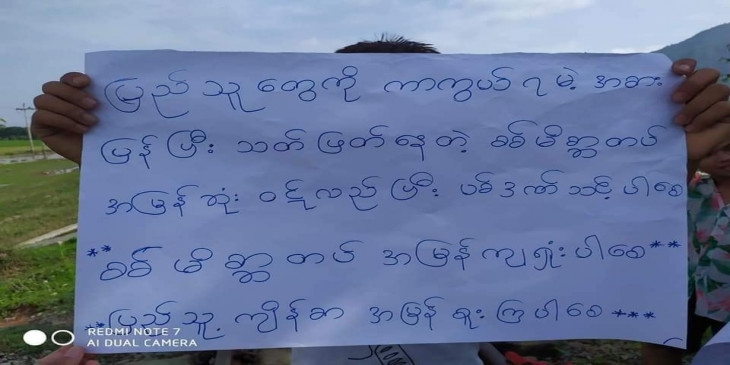 ပြည်သူတွေကို ကာကွယ်ရမဲ့ အစား
ပြန်ပြီး သတ်ဖြတ်နေတဲ့ စစ်မိစ္ဆာတပ်
အမြန်ဆုံး ဝဋ်လည်ပြီး ပစ်ဒဏ်သင့်ပါစေ
**စစ်မိစ္ဆာတပ် အမြန်ကျရှုံးပါစေ**
**ပြည်သူ့ ကျိန်စာ အမြန် ရူးကြပါစေ***
REDMI NOTE 7
AI DUAL CAMERA